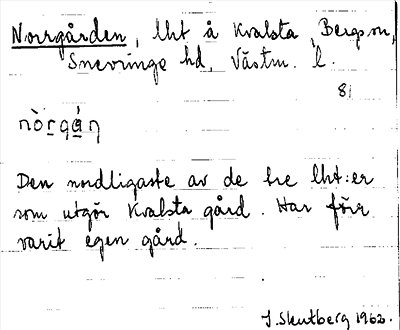 Norrgården, lht å Kvalsta, Bergs sn,
Snevringe hd, Västm. l.
81
nòrgán
Den nordligaste av de tre lht:er
som utgör Kvalsta gård. Har förr
varit egen gård.
J. Skutberg 1962.